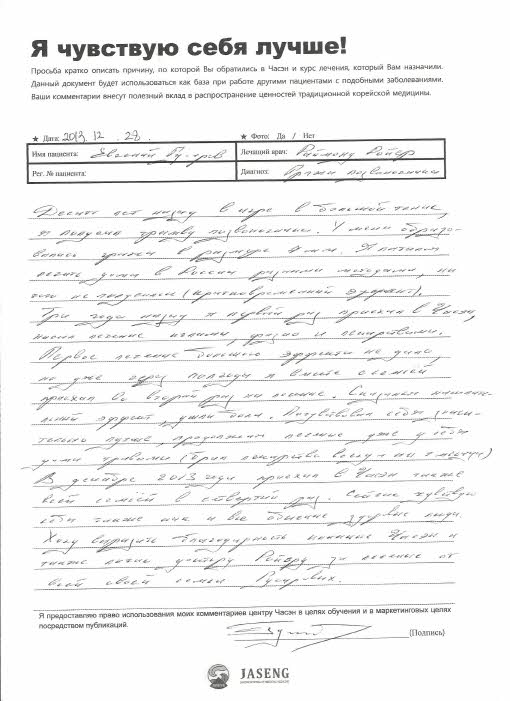 Я чувствую себя лучше!
Просьба кратко описать причину, по которой Вы обратились в Часэн и курс лечения, который Вам назначили.
Данный документ будет использоваться как база при работе другими пациентами с подобными заболеваниями.
Ваши комментарии внесут полезный вклад в распространение ценностей традиционной корейской медицины.
★ Дата: 2013. 12 . 28 .
★ Фото: Да / Нет
Имя пациента: Евгений
Лечащий врач: Раймонд Ройер
Рег. № пациента:
Диагноз: Грыжи позвоночника
Десять лет назад в игре в большой теннис,
я получил травму позвоночника. У меня образо-
валась грыжа в размере 9 мм. Я начал
лечить дома в России разными методами, ни-
чего не получалось (кратковременный эффект).
Три года назад я первый раз приехал в Часэн,
начал лечение иглами, физио и лекарствами.
Первое лечение большого эффекта не дало,
но уже через полгода я вместе с семьей
приехал во второй раз на лечение.
эффект, ушли боли. Почувствовал себя значи-
тельно лучше, продолжал лечение уже у себя
дома травами (брал лекарство всегда на месяца)
В декабре 2013 года приехал в Часэн также
всей семьёй в четвертый раз. Сейчас чувствую
себя также как и все обычные здоровые люди.
Хочу выразить благодарность клинике Часэн и
также лично доктору Ройеру за лечение от
всей своей семьи
Я предоставляю право использования моих комментариев центру Часэн в целях обучения и в маркетинговых целях
посредством публикаций.
(Подпись)
JASENG